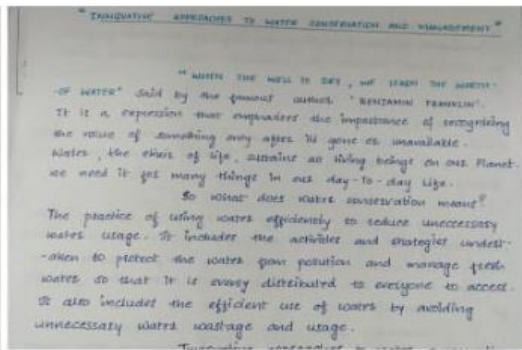 "INNOVATIVE APPROACHES TO WATER CONSERVATION AND MANAGEMENT"
"WHEN THE WELL IS DRY, WE LEARN THE WORTH-
-OF WATER" said by the famous author 'BENJAMIN FRANKLIN'.
It is a expression that emphasizes the importance of recognizing
the value of something only after its gone or unavailable.
Water, the elixir of life, sustains as living beings on our Planet.
we need it for many things in our day-to-day life.
So what does water conservation means?
The practice of using water efficiently to reduce unneccessary
water usage. It includes the activities and strategies undert-
-aken to protect the water from polution and manage fresh
water so that it is evenly distributed to everyone to access.
It also includes the efficient use of water by avoiding
unnecessary water wastage and usage.